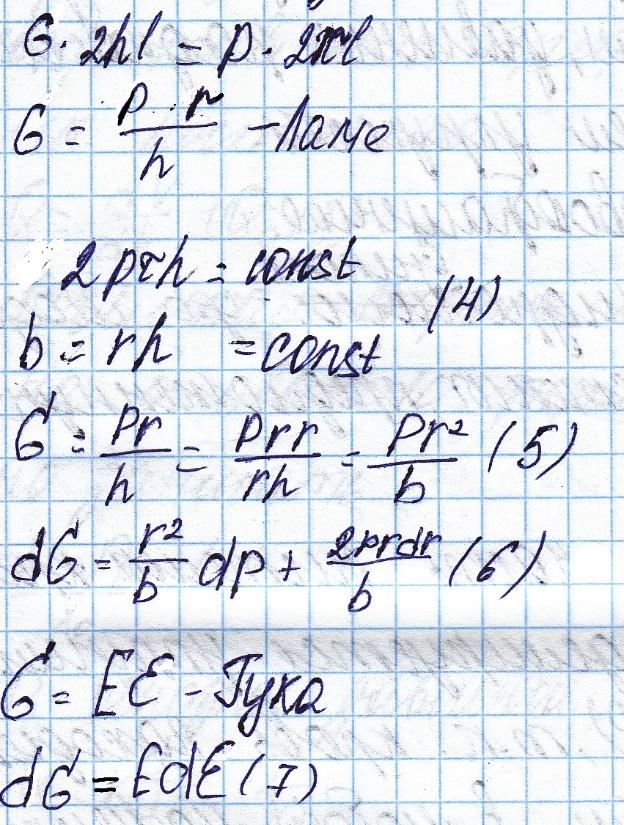 σ · 2hl = p · 2πrl
σ = p · r / h – Ламе
2ρπrh = const
(4)
b = rh = const
σ = pr / h = prr / rh = pr² / b (5)
dσ = r² / b dp + 2prdr / b (6)
σ = Eε – Гука
dσ = Edε (7)